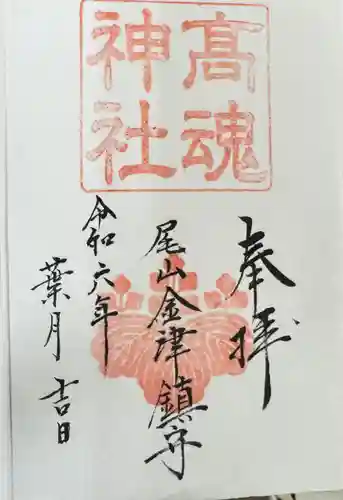 高魂
神社
奉拝
尾山金津鎮守
令和六年
葉月吉日